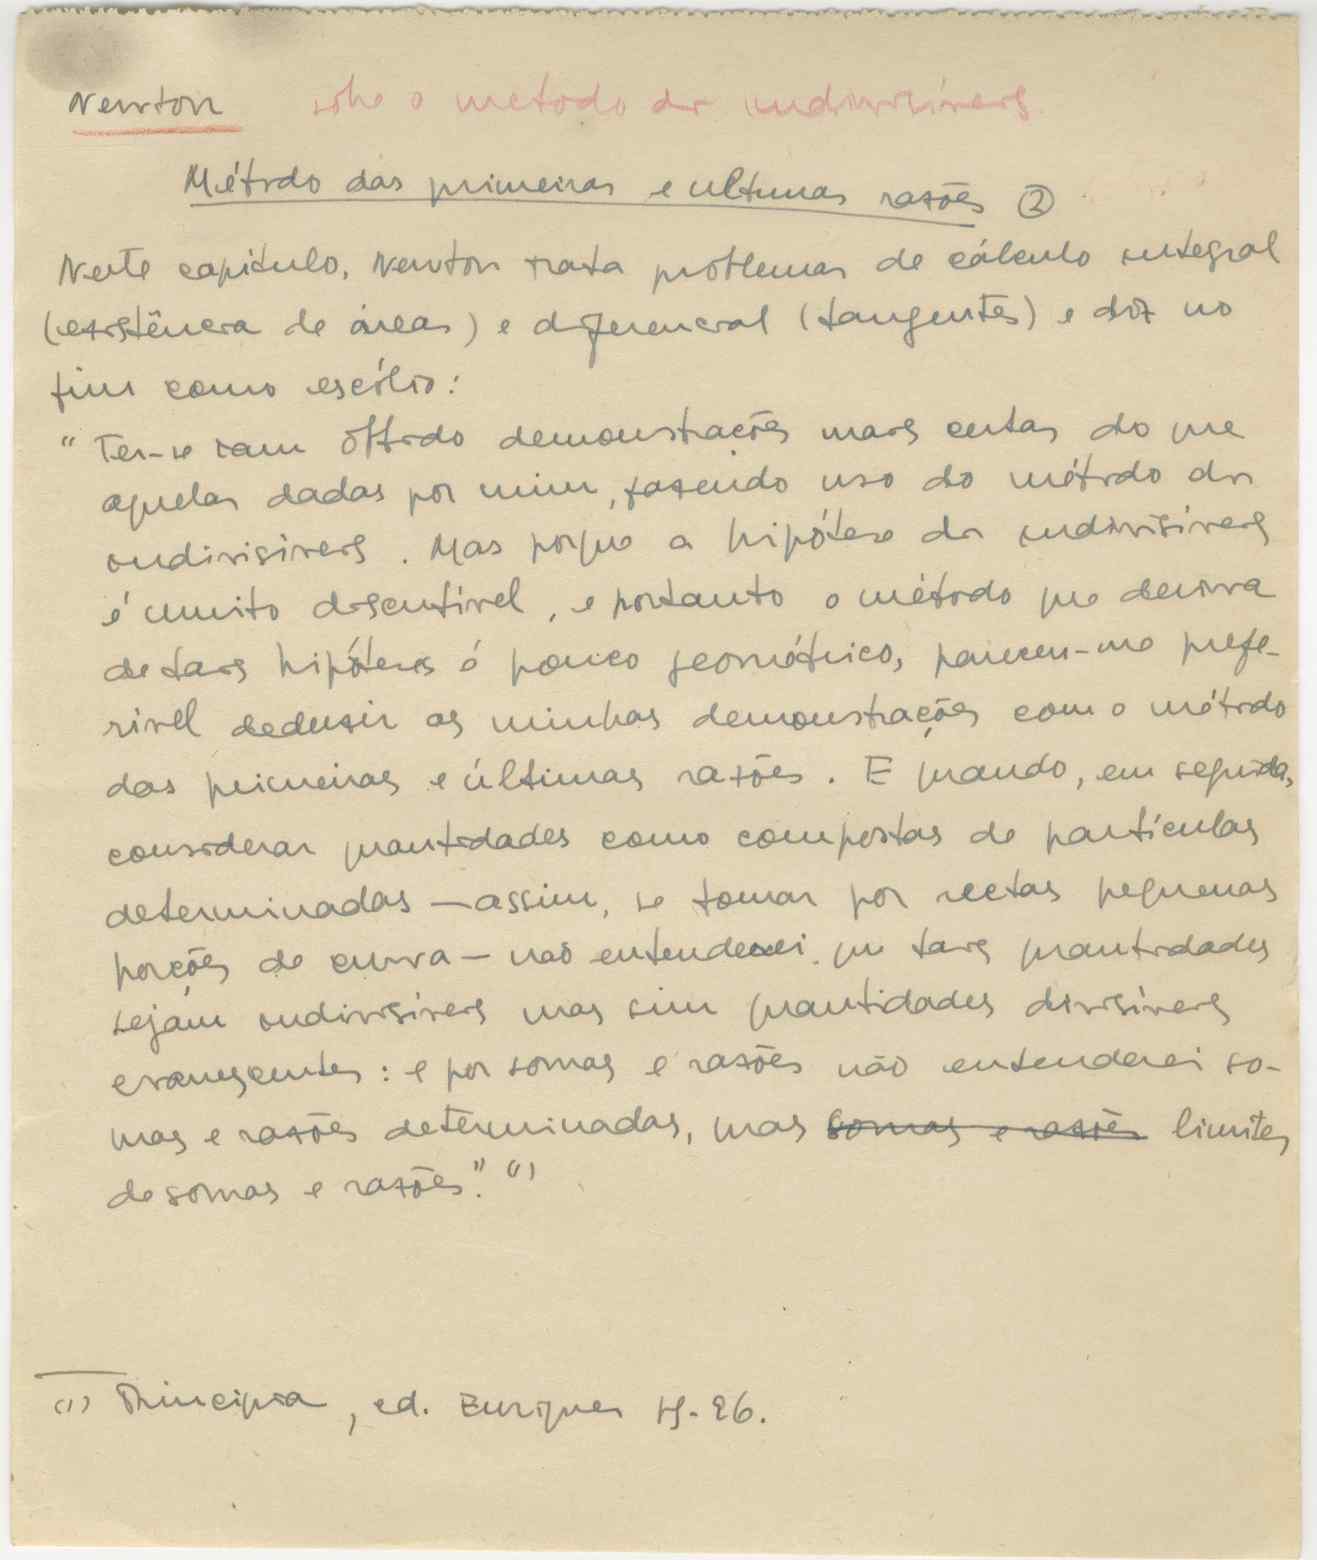 Newton sobre o metodo dos indivisíveis.
Método das primeiras e ultimas razões ②
Neste capítulo, Newton trata problemas de cálculo integral
(existência de áreas) e diferencial (tangentes) e diz no
fim como escólio:
"Ter-se iam obtido demonstrações mais curtas do que
aquelas dadas por mim, fazendo uso do método dos
indivisiveis. Mas porque a hipótese dos indivisíveis
é muito discutível, e portanto o método que deriva
de tais hipóteses é pouco geométrico, pareceu-me prefe-
rivel deduzir as minhas demonstrações com o método
das primeiras e últimas razões. E quando, em seguida,
considerar quantidades como compostas de partículas
determinadas — assim, se tomar por rectas pequenas
porções de curva — não entenderei que tais quantidades
sejam indivisíveis mas sim quantidades divisíveis
evanescentes: e por somas e razões não entenderei so-
mas e razões determinadas, mas somas e razões limites
de somas e razões". (1)
(1) Principia, ed. Enriques